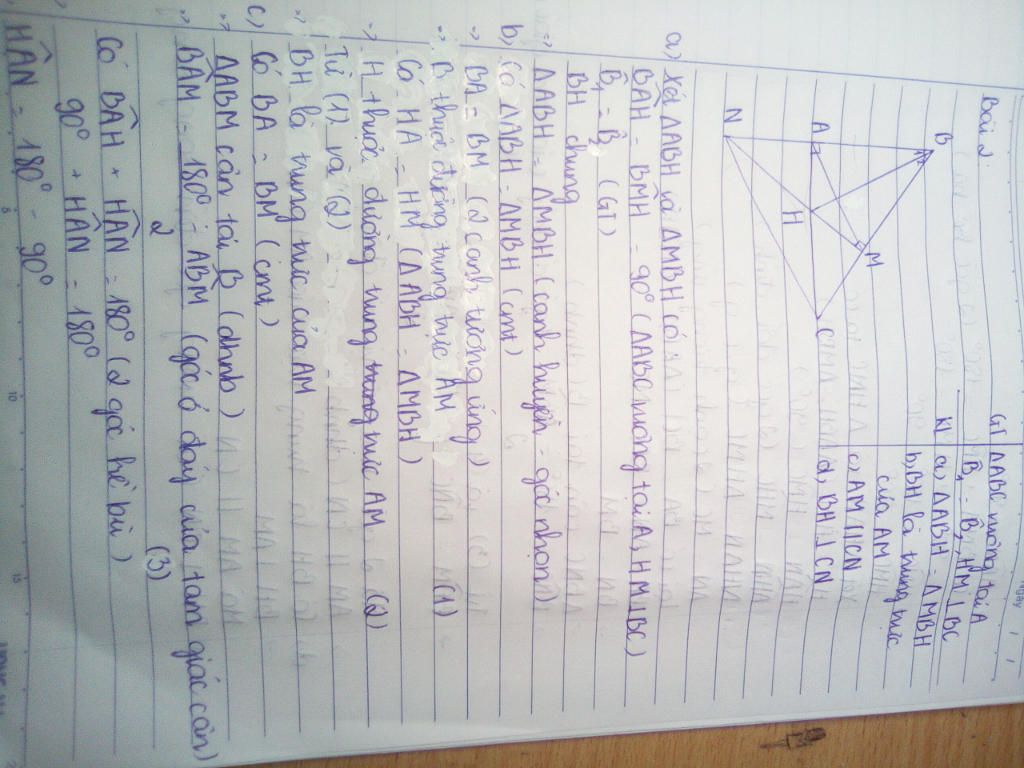 Bài 2:
GT ΔABC vuông tại A
B̂₁ = B̂₂, HM ⊥ BC
KL a, ΔABH = ΔMBH
b, BH là trung trực
của AM
c, AM // CN
d, BH ⊥ CN
B
A
M
H
N
C
a) Xét ΔABH và ΔMBH có
BÂH = BM̂H = 90° (ΔABC vuông tại A, HM ⊥ BC)
B̂₁ = B̂₂ (GT)
BH chung
=> ΔABH = ΔMBH (cạnh huyền - góc nhọn)
b) Có ΔABH = ΔMBH (cmt)
=> BA = BM (2 cạnh tương ứng)
=> B thuộc đường trung trực AM (1)
Có HA = HM (ΔABH = ΔMBH)
=> H thuộc đường trung trực AM (2)
Từ (1) và (2)
=> BH là trung trực của AM
c) Có BA = BM (cmt)
=> ΔABM cân tại B̂ (dhnb)
=> BÂM = 180° - AB̂M (góc ở đáy của tam giác cân)
2 (3)
Có BÂH + HÂN = 180° (2 góc kề bù)
90° + HÂN = 180°
HÂN = 180° - 90°